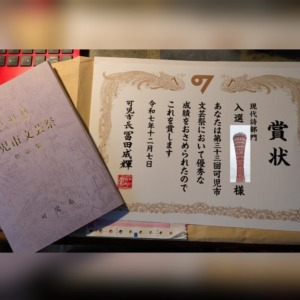 賞状
現代詩部門
入選
様
あなたは第三十三回可児市
文芸祭において優秀な
成績をおさめられたので
これを賞します
令和七年十二月七日
可児市長 冨田成輝
児市文芸祭